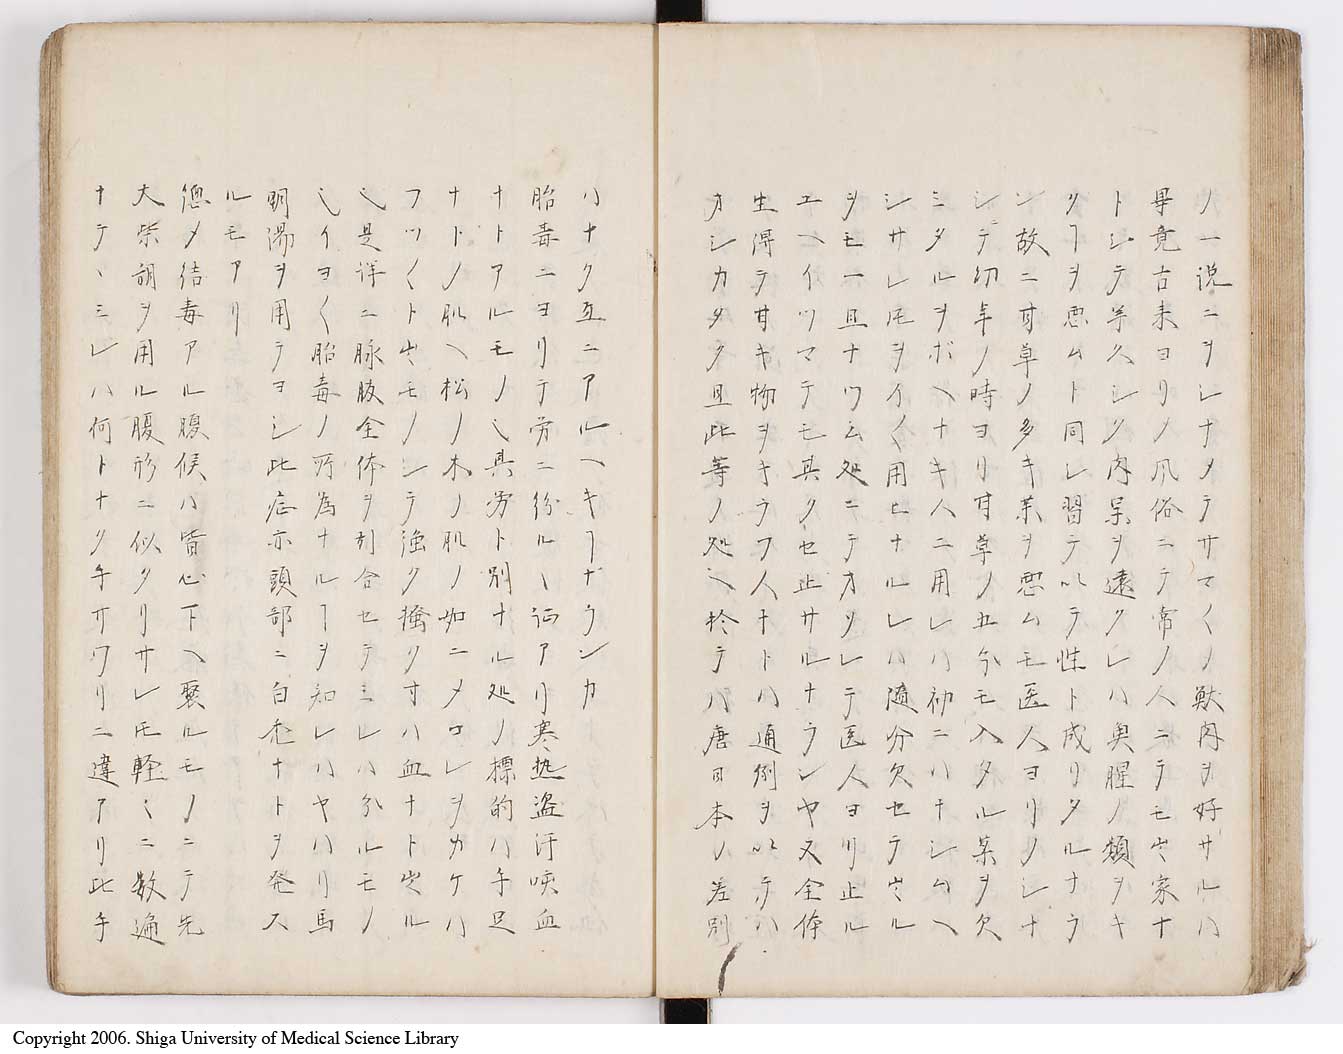 ノ一説ニヲシナメテサマ〱ノ獣肉ヲ好サルハ
畢竟古来ヨリノ風俗ニテ常ノ人ニテモ出家ナ
トシテ学久シク肉果ヲ遠クレハ臭腥ノ類ヲキ
クヿヲ悪ムト同シ習テ以テ性ト成リタルナラ
ン故ニ甘草ノ多キ薬ヲ悪ムモ医人ヨリクシナ
シテ幼年ノ時ヨリ甘草ノ五分モ入タル薬ヲ欠
ミタルヲボヘナキ人ニ用レハ初ニハナシムヘ
シサレ𪜈ヲイ〱用ヒナルレハ随分欠セテ出ル
ヲモ一旦ナツム処ニテオクレテ医人ヨリ止ル
エヘイツマテモ其クセ止サルナラシヤ又全体
生得テ甘キ物ヲキラフ人ナトハ通例ヲ以テハ
オシカタク且此等ノ処ヘ於テハ唐日本ノ差別
ハナク互ニアルヘキヿナランカ
胎毒ニヨリテ労ニ紛ル丶証アリ寒熱盗汗咳血
ナトアルモノ也其労ト別ナル処ノ標的ハ手足
ナトノ肌ヘ松ノ木ノ肌ノ如ニメコレヲカケハ
フツ〱ト出モノシテ強ク掻クサハ血ナト出ル
也是詳ニ脉腹全体ヲ引合セテミレハ分ルモノ
也イヨ〱胎毒ノ所為ナルヿヲ知レハヤハリ馬
明湯ヲ用テヨシ此症亦頭部ニ白禿ナトヲ発ス
ルモアリ
惣メ結毒アル腹候ハ皆心下ヘ聚ルモノニテ先
大柴胡ヲ用ル腹形ニ似タリサレ𪜈軽〻ニ数遍
ナテ丶ミレハ何トナク手サワリニ違アリ此手